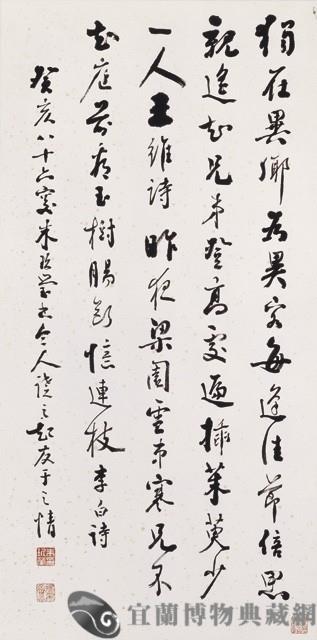 獨在異鄉為異客每逢佳節倍思
親遙知兄弟登高處遍插茱萸少
一人王維詩 昨夜梁園雪弟寒兄不
知庭前看玉樹腸斷憶連枝 李白詩
癸亥八十六叟朱玖瑩書令人讀之起友于之情
宜蘭博物典藏網